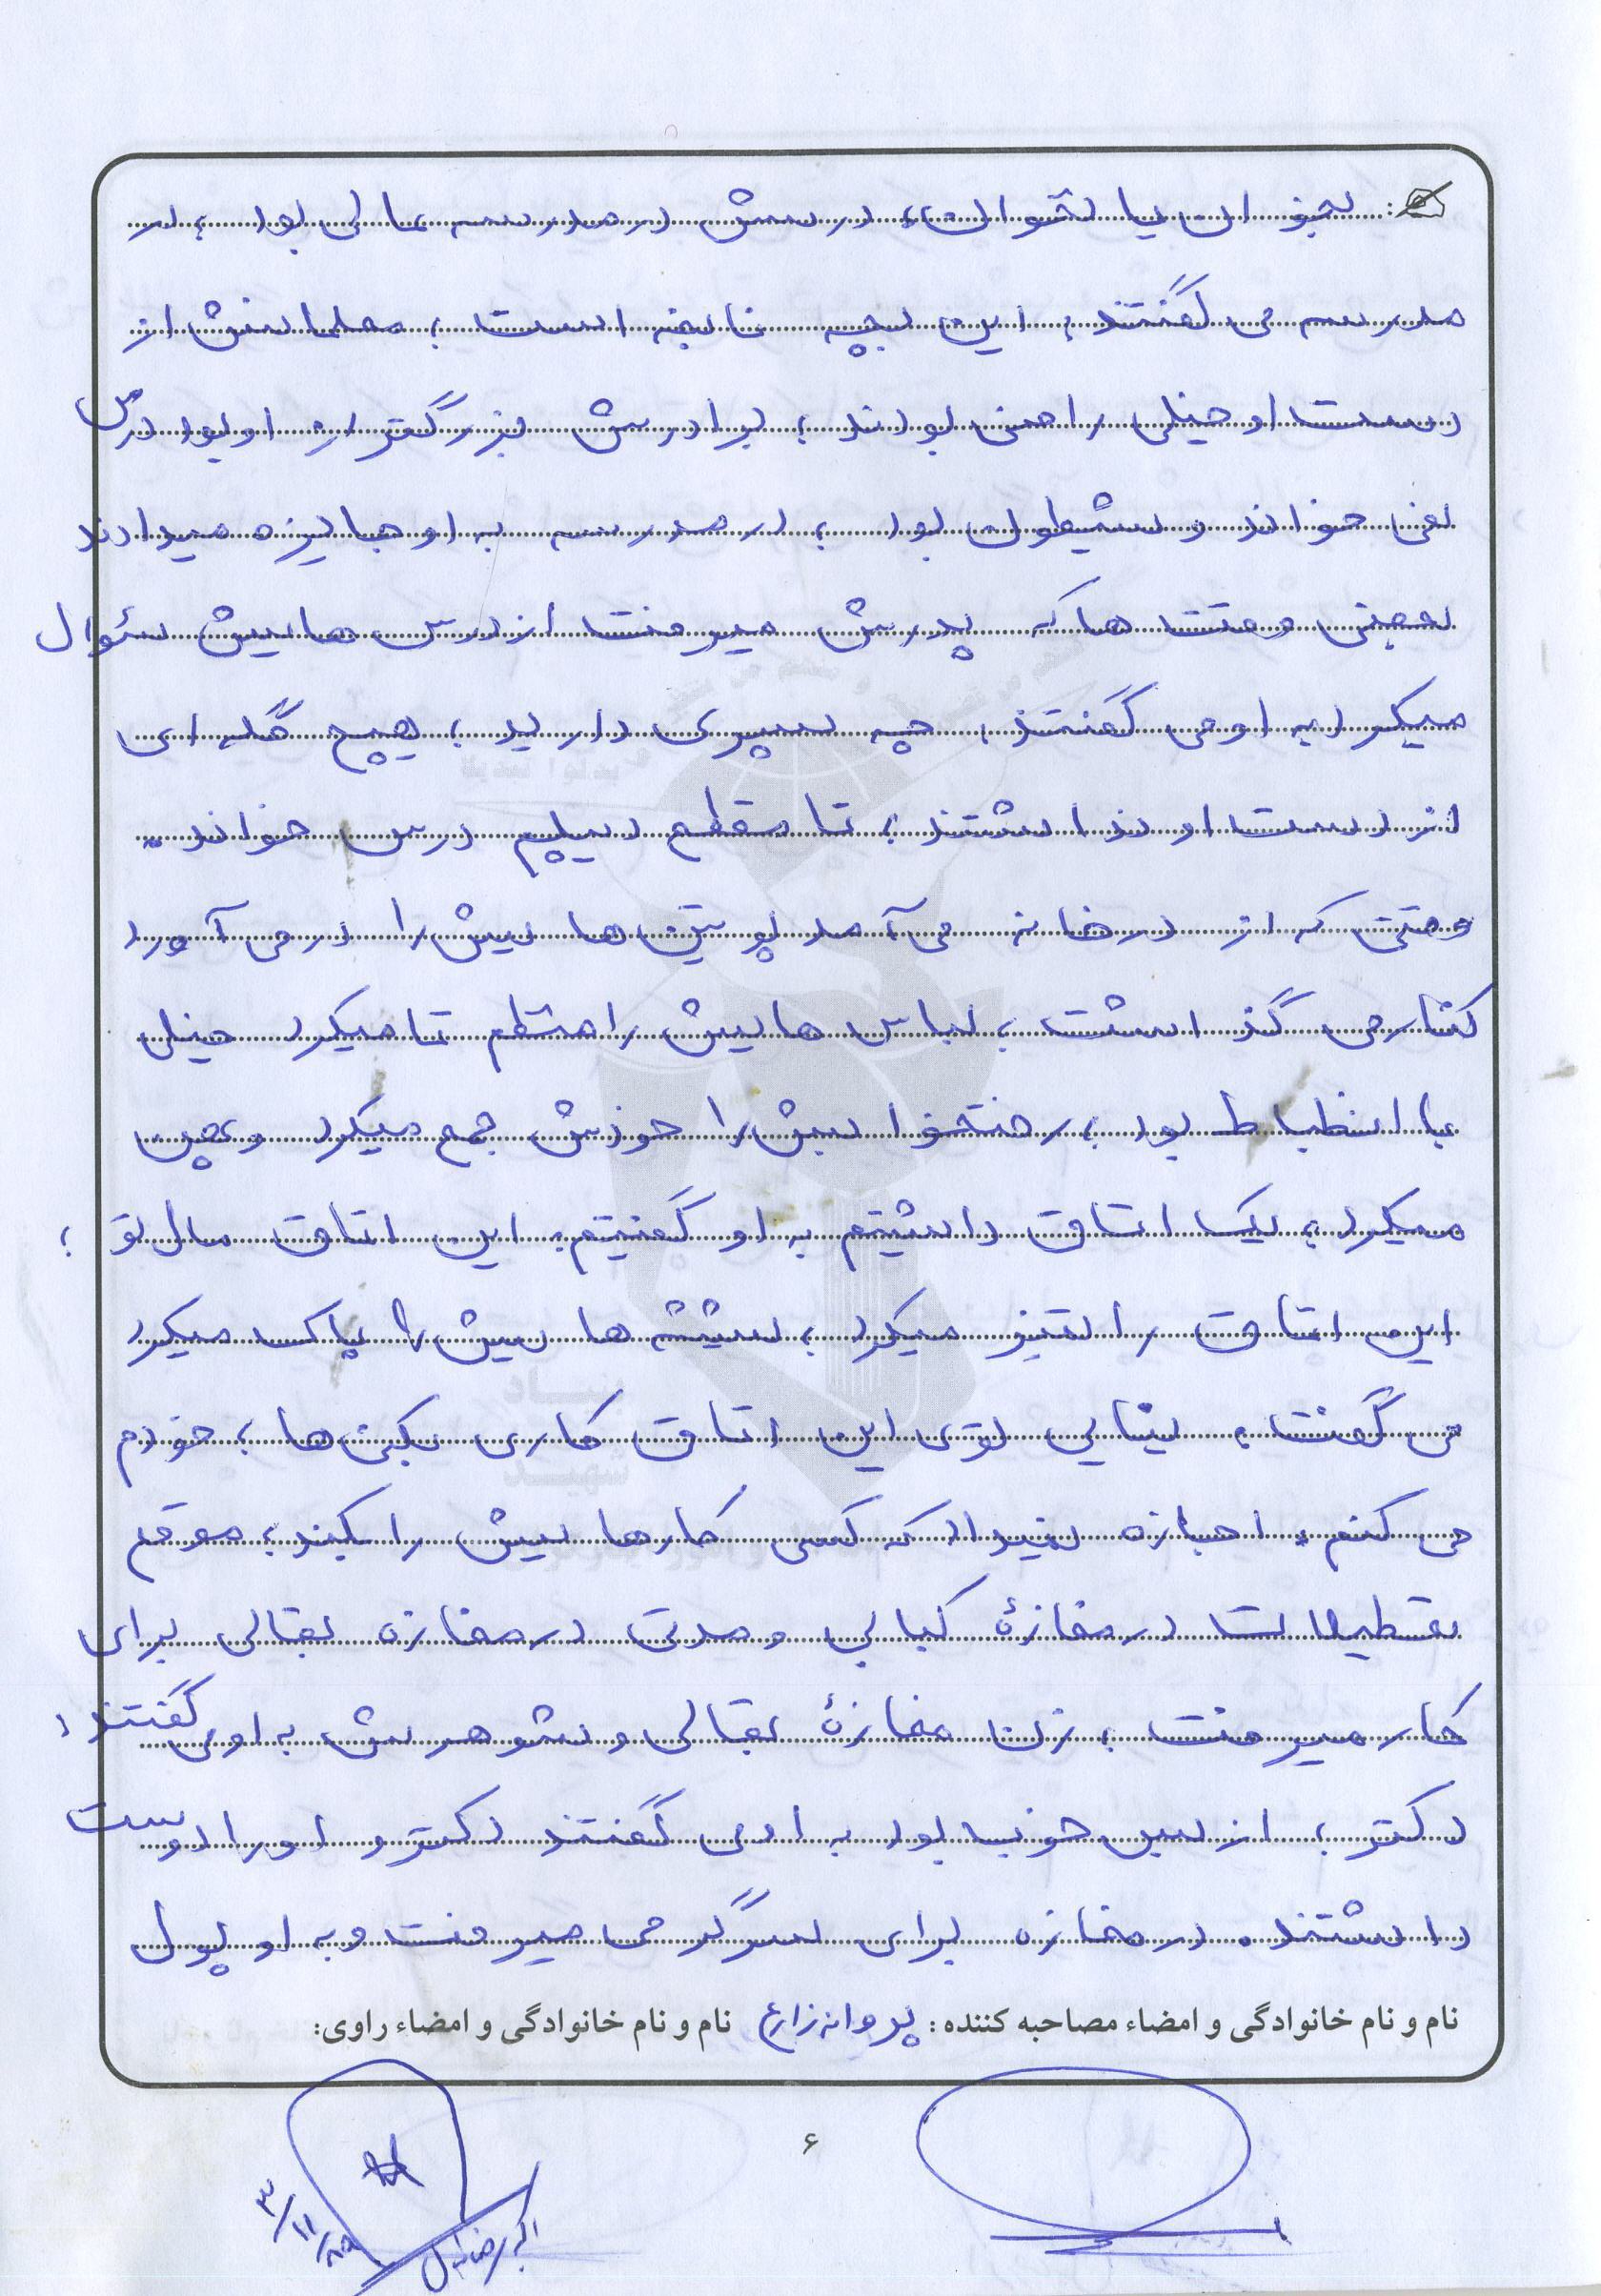 بخوان یا نخوان، درسش در مدرسه عالی بود؛ در
مدرسه می گفتند؛ این بچه نابغه است؛ معلمانش از
دست او خیلی راضی بودند؛ برادرش بزرگتر از او بود درس
نمی خواند و شیطون بود؛ در مدرسه به او جایزه میدادند
بعضی وقت ها که پدرش میرفت از درس هاییش سئوال
میکرد به او می گفتند؛ چه پسری دارید؛ هیچ گله ای
از دست او نداشتند؛ تا مقطع دیپلم درس خواند.
وقتی که از در خانه می آمد پوتین هاییش را در می آورد
کنار می گذاشت؛ لباس هاییش را منظم تا میکرد خیلی
با انظباط بود؛ رختخوابش را خودش جمع میکرد و پهن
میکرد؛ یک اتاق داشتیم به او گفتیم؛ این اتاق مال تو؛
این اتاق را تمیز میکرد؛ شیشه هاییش را پاک میکرد
می گفت؛ نیایی توی این اتاق کاری بکنی ها؛ خودم
می کنم، اجازه نمیداد که کسی کارهاییش را بکند؛ موقع
تعطیلات در مغازهٔ کبابی و مدتی در مغازه بقالی برای
کار میرفت؛ زن مغازهٔ بقالی و شوهرش به او می گفتند؛
دکتر؛ از بس خوب بود به او می گفتند دکتر و او را دوست
داشتند. در مغازه برای سرگرمی میرفت و به او پول
نام و نام خانوادگی و امضاء مصاحبه کننده: پروانه زارع نام و نام خانوادگی و امضاء راوی:
۶
۳/۱۱/۸۹